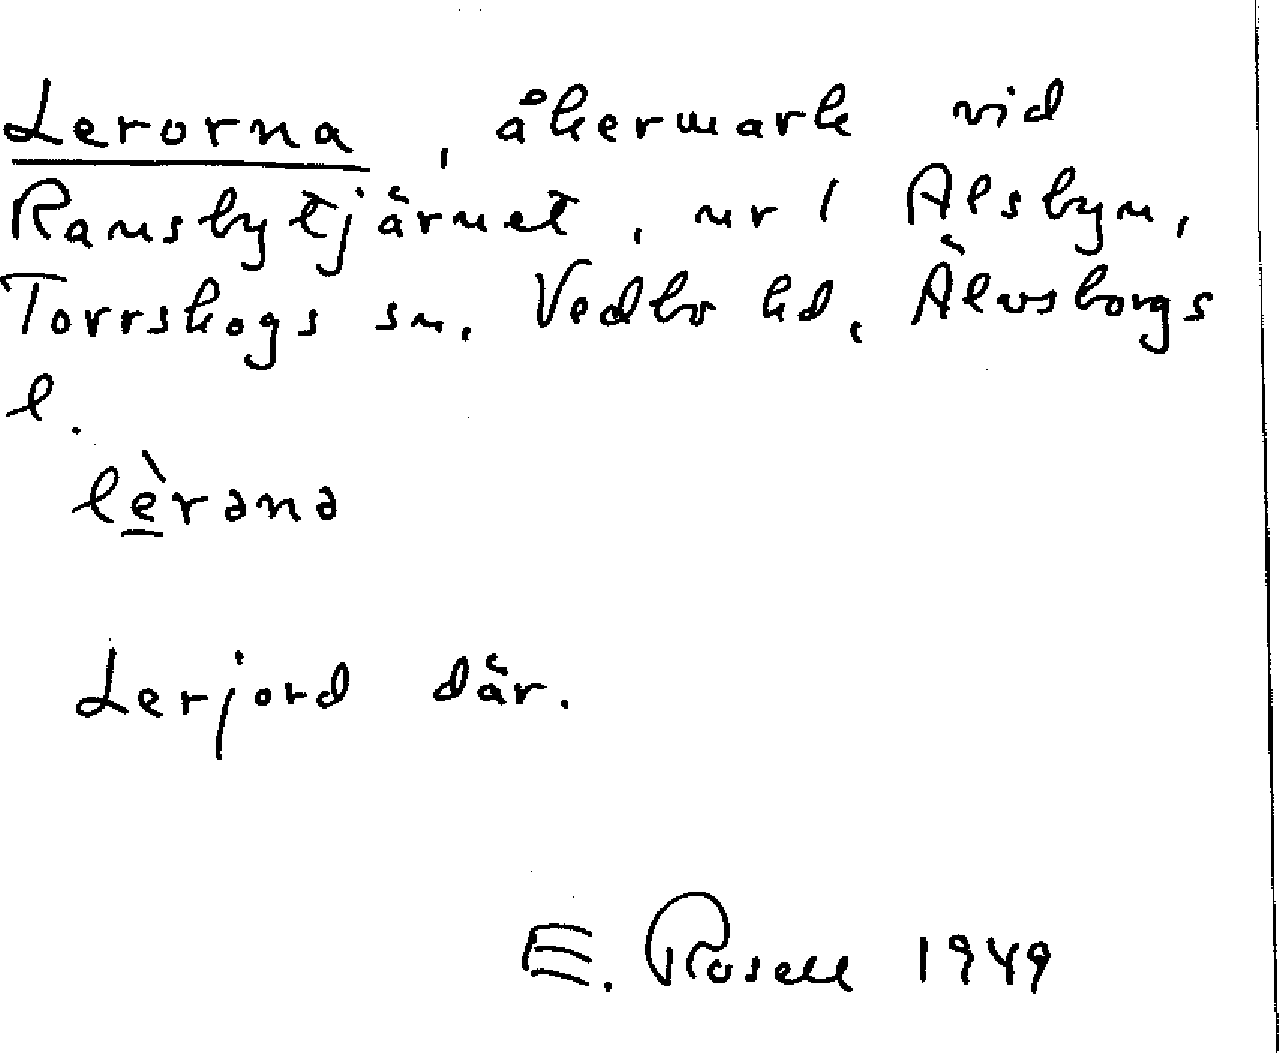 Lerorna, åkermark vid
Ransbytjärnet, nr 1 Alsbyn,
Torrskogs sn. Vedbo hd, Älvsborgs
l.
lèrənə
Lerjord där.
E. Rosell 1949